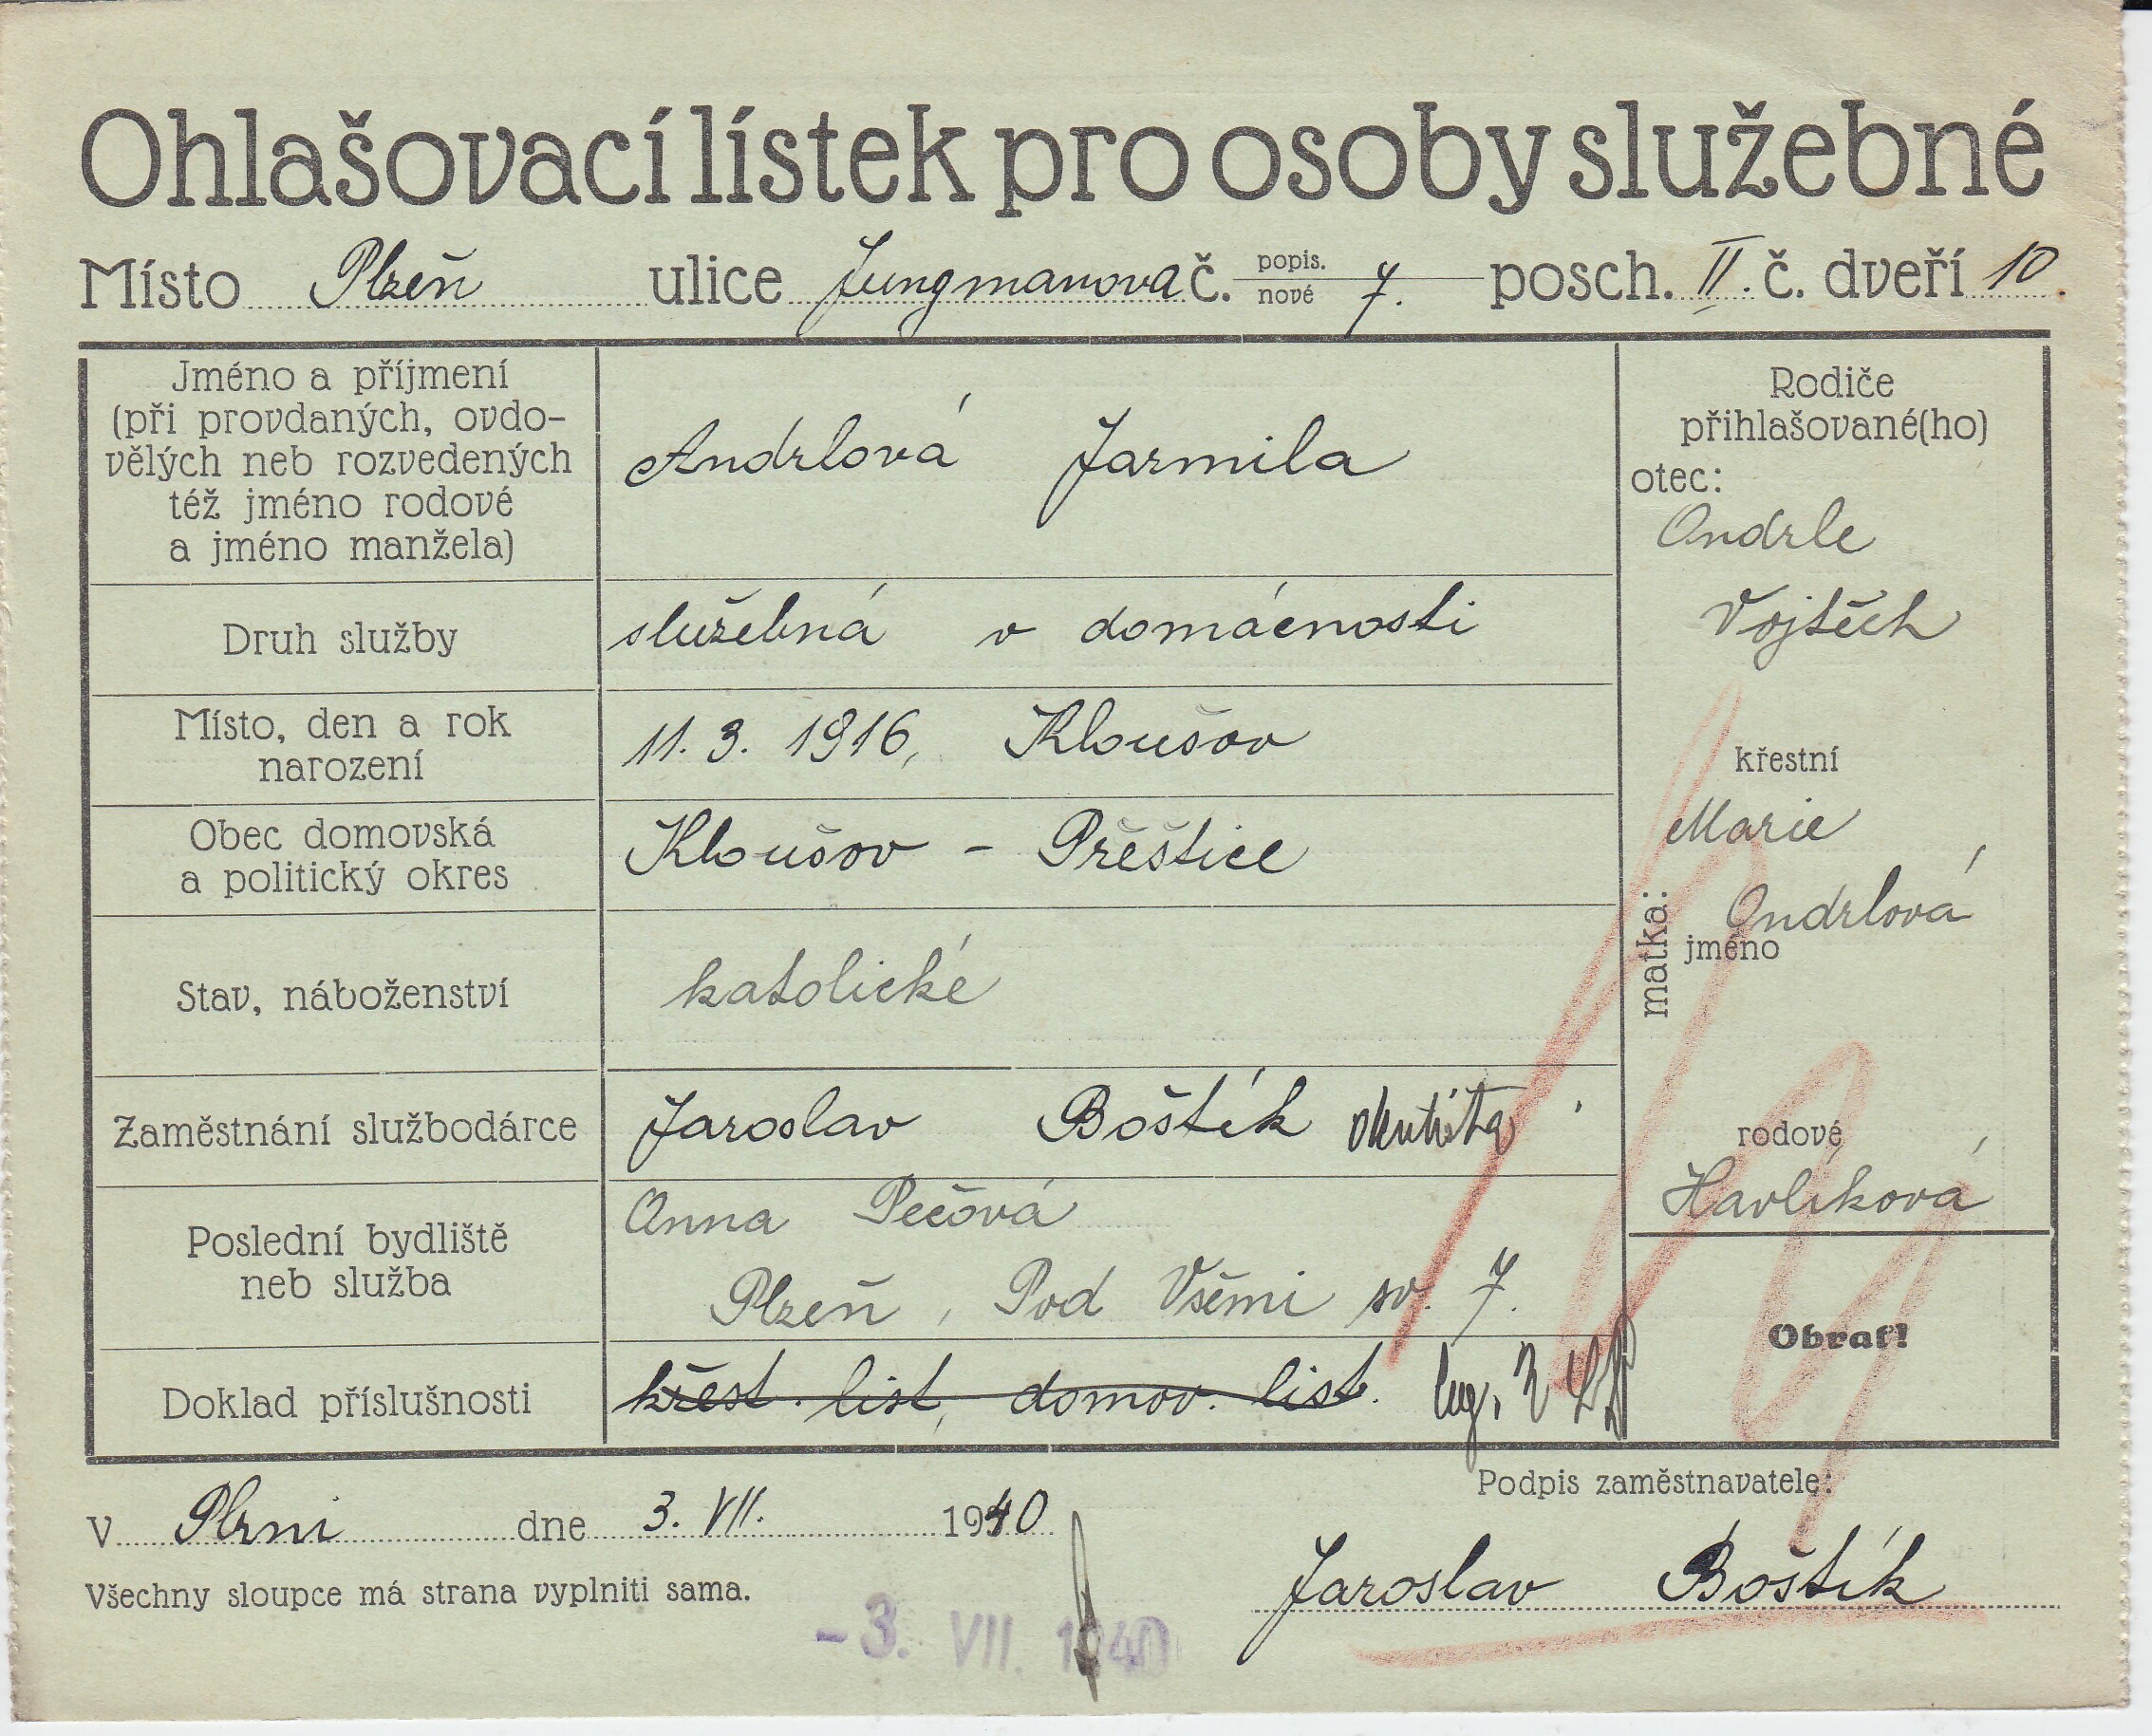 Ohlašovací lístek pro osoby služebné
Místo Plzeň ulice Jungmanova č. popis. nové 7. posch. II. č. dveří 10.
Jméno a příjmení
(při provdaných, ovdo-
vělých neb rozvedených
též jméno rodové
a jméno manžela)
Andrlová Jarmila
Druh služby
služebná v domácnosti
Místo, den a rok
narození
11. 3. 1916, Kloušov
Obec domovská
a politický okres
Kloušov - Přěštice
Stav, náboženství
katolické
Zaměstnání služбodárce
Jaroslav Boštík
Poslední bydliště
neb služba
Anna Pečová
Plzeň, Pod Všěmi sv. 7.
Doklad příslušnosti
křest. list, domov. list.
Rodiče
přihlašované(ho)
otec:
Ondrle
Vojtěch
matka:
křestní
Marie
Ondrlová
jméno
rodové
Havlíková
Obrať!
V Plzni dne 3. VII. 1940
Podpis zaměstnavatele:
Všechny sloupce má strana vyplniti sama.
Jaroslav Boštík
- 3. VII. 1940